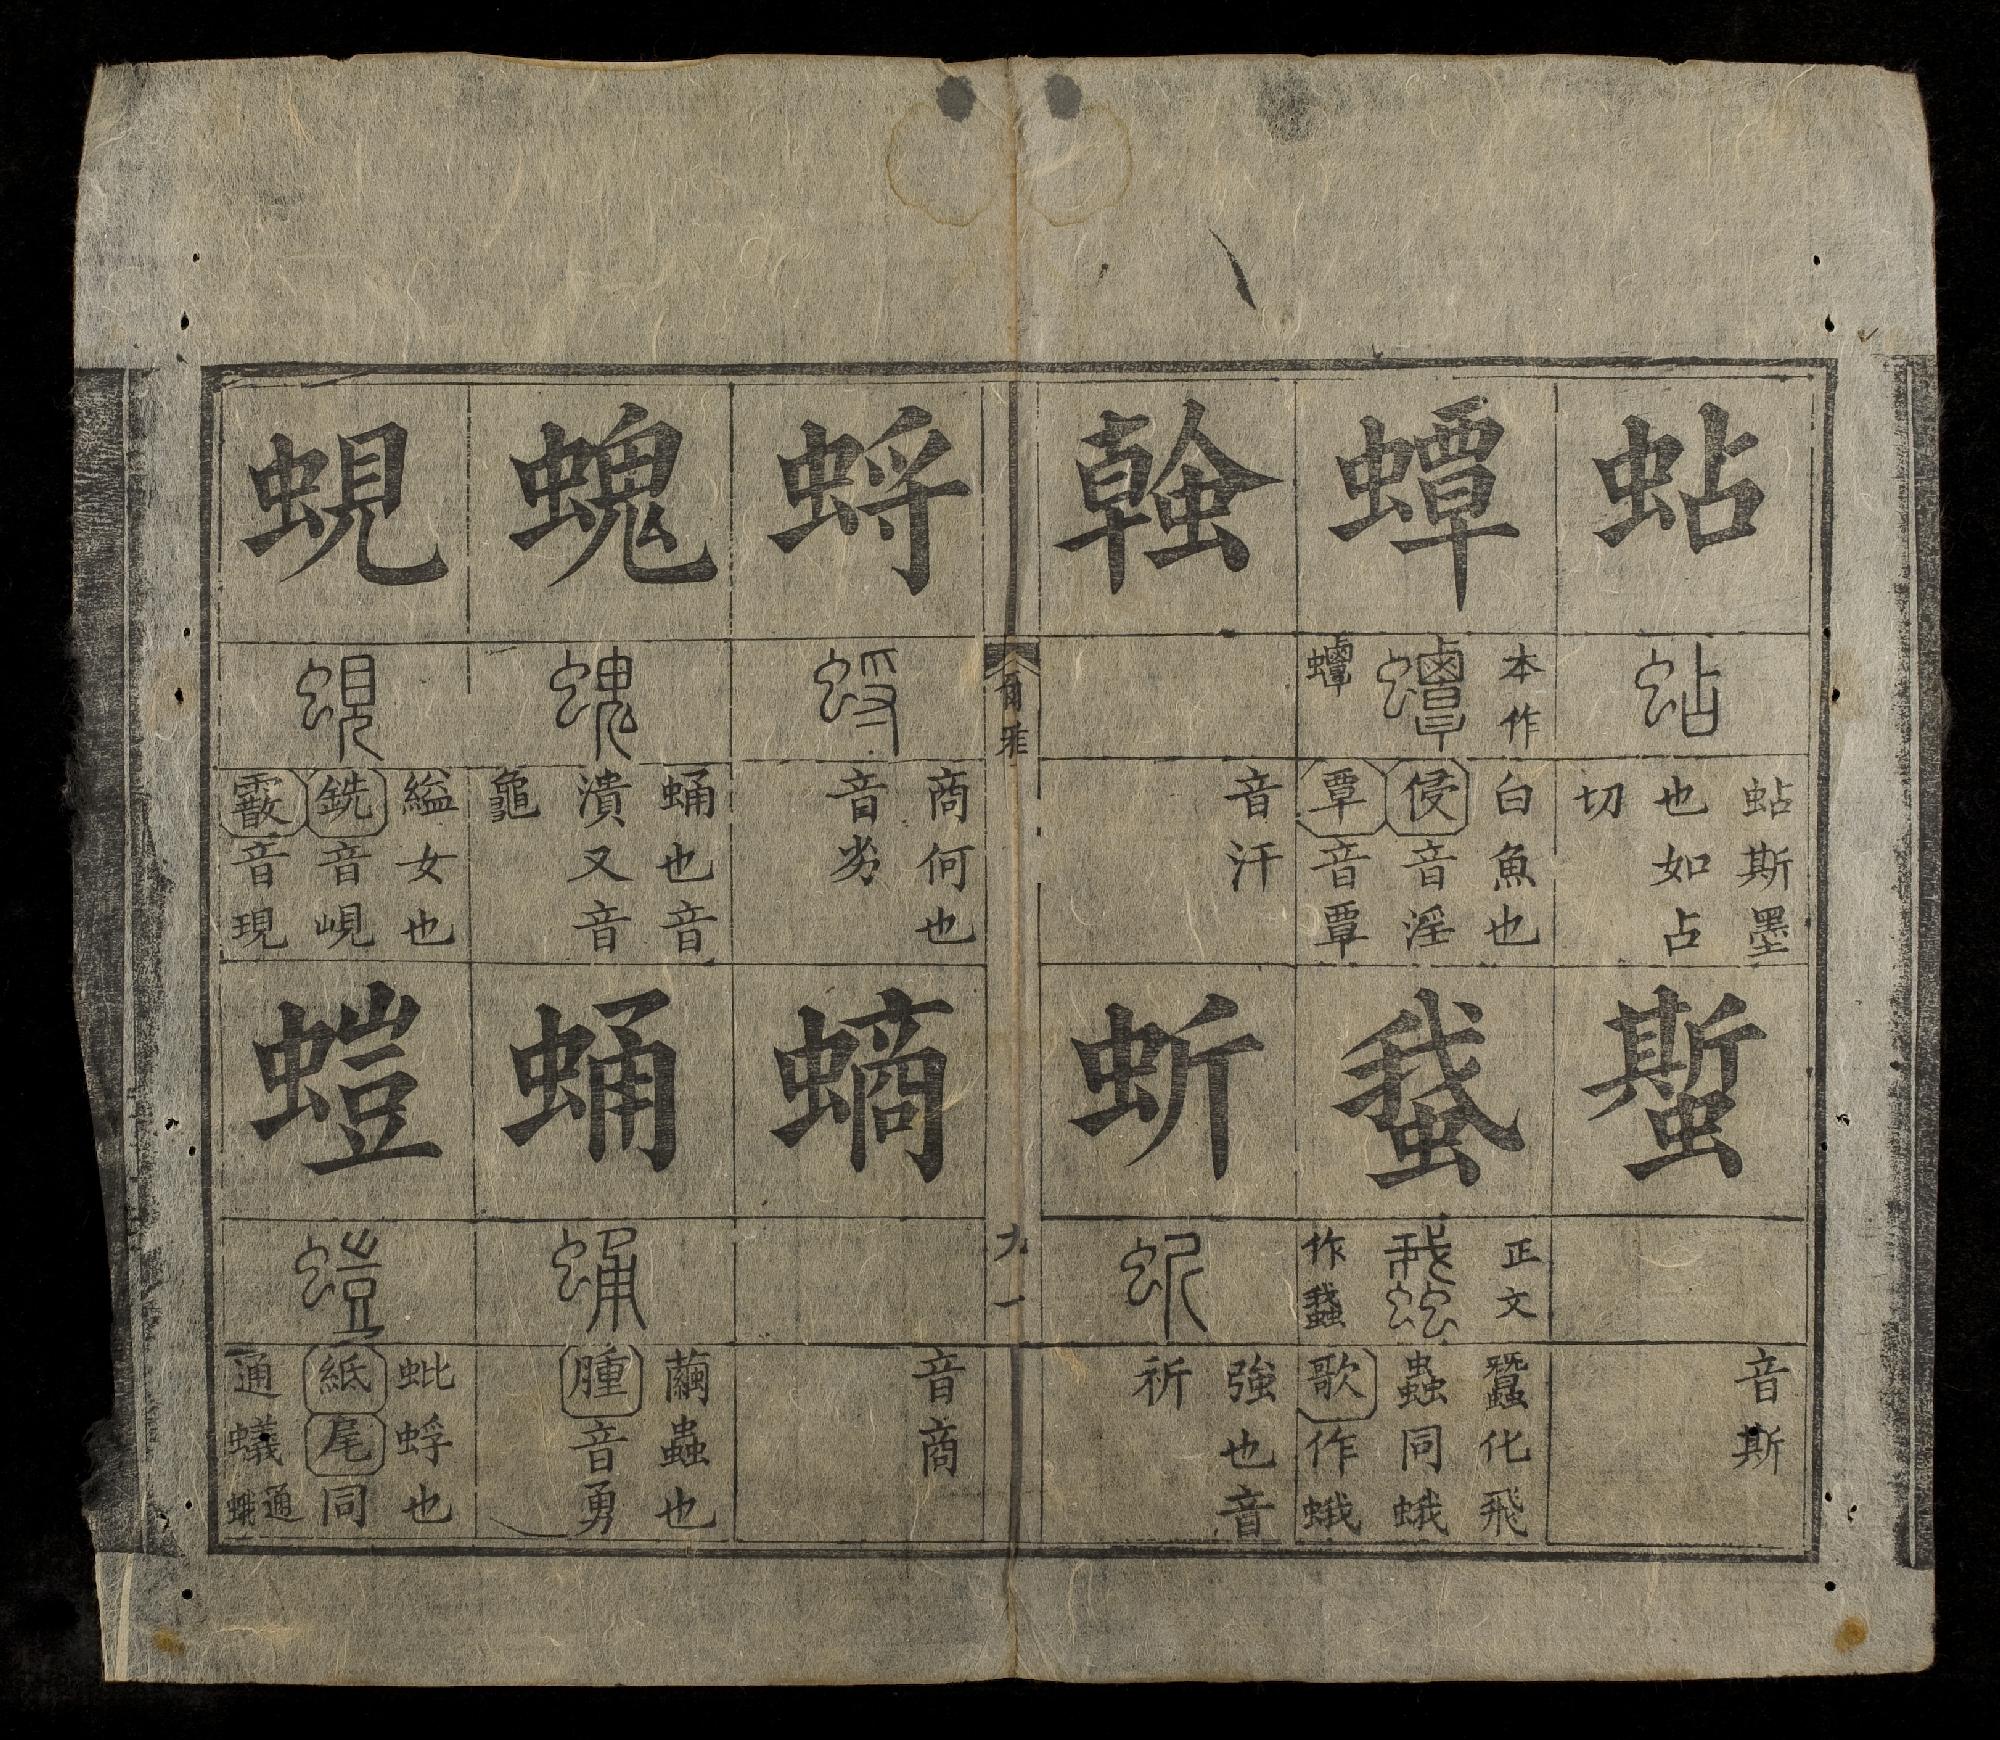 蛅
蛅
蛅斯墨
也如占
切
蟴
音斯
蟫
本作
白魚也
侵音淫
覃音覃
䖸
正文
作
蠶化飛
蟲同蛾
歌作蛾
螒
音汗
蚚
蚚
強也音
祈
爾雅 九一
蛶
蛶
商何也
音劣
螪
音商
螝
螝
蛹也音
潰又音
龜
蛹
蛹
繭蟲也
腫音勇
蜆
蜆
縊女也
銑音峴
霰音現
螘
螘
蚍蜉也
紙尾同
通蟻通蛾